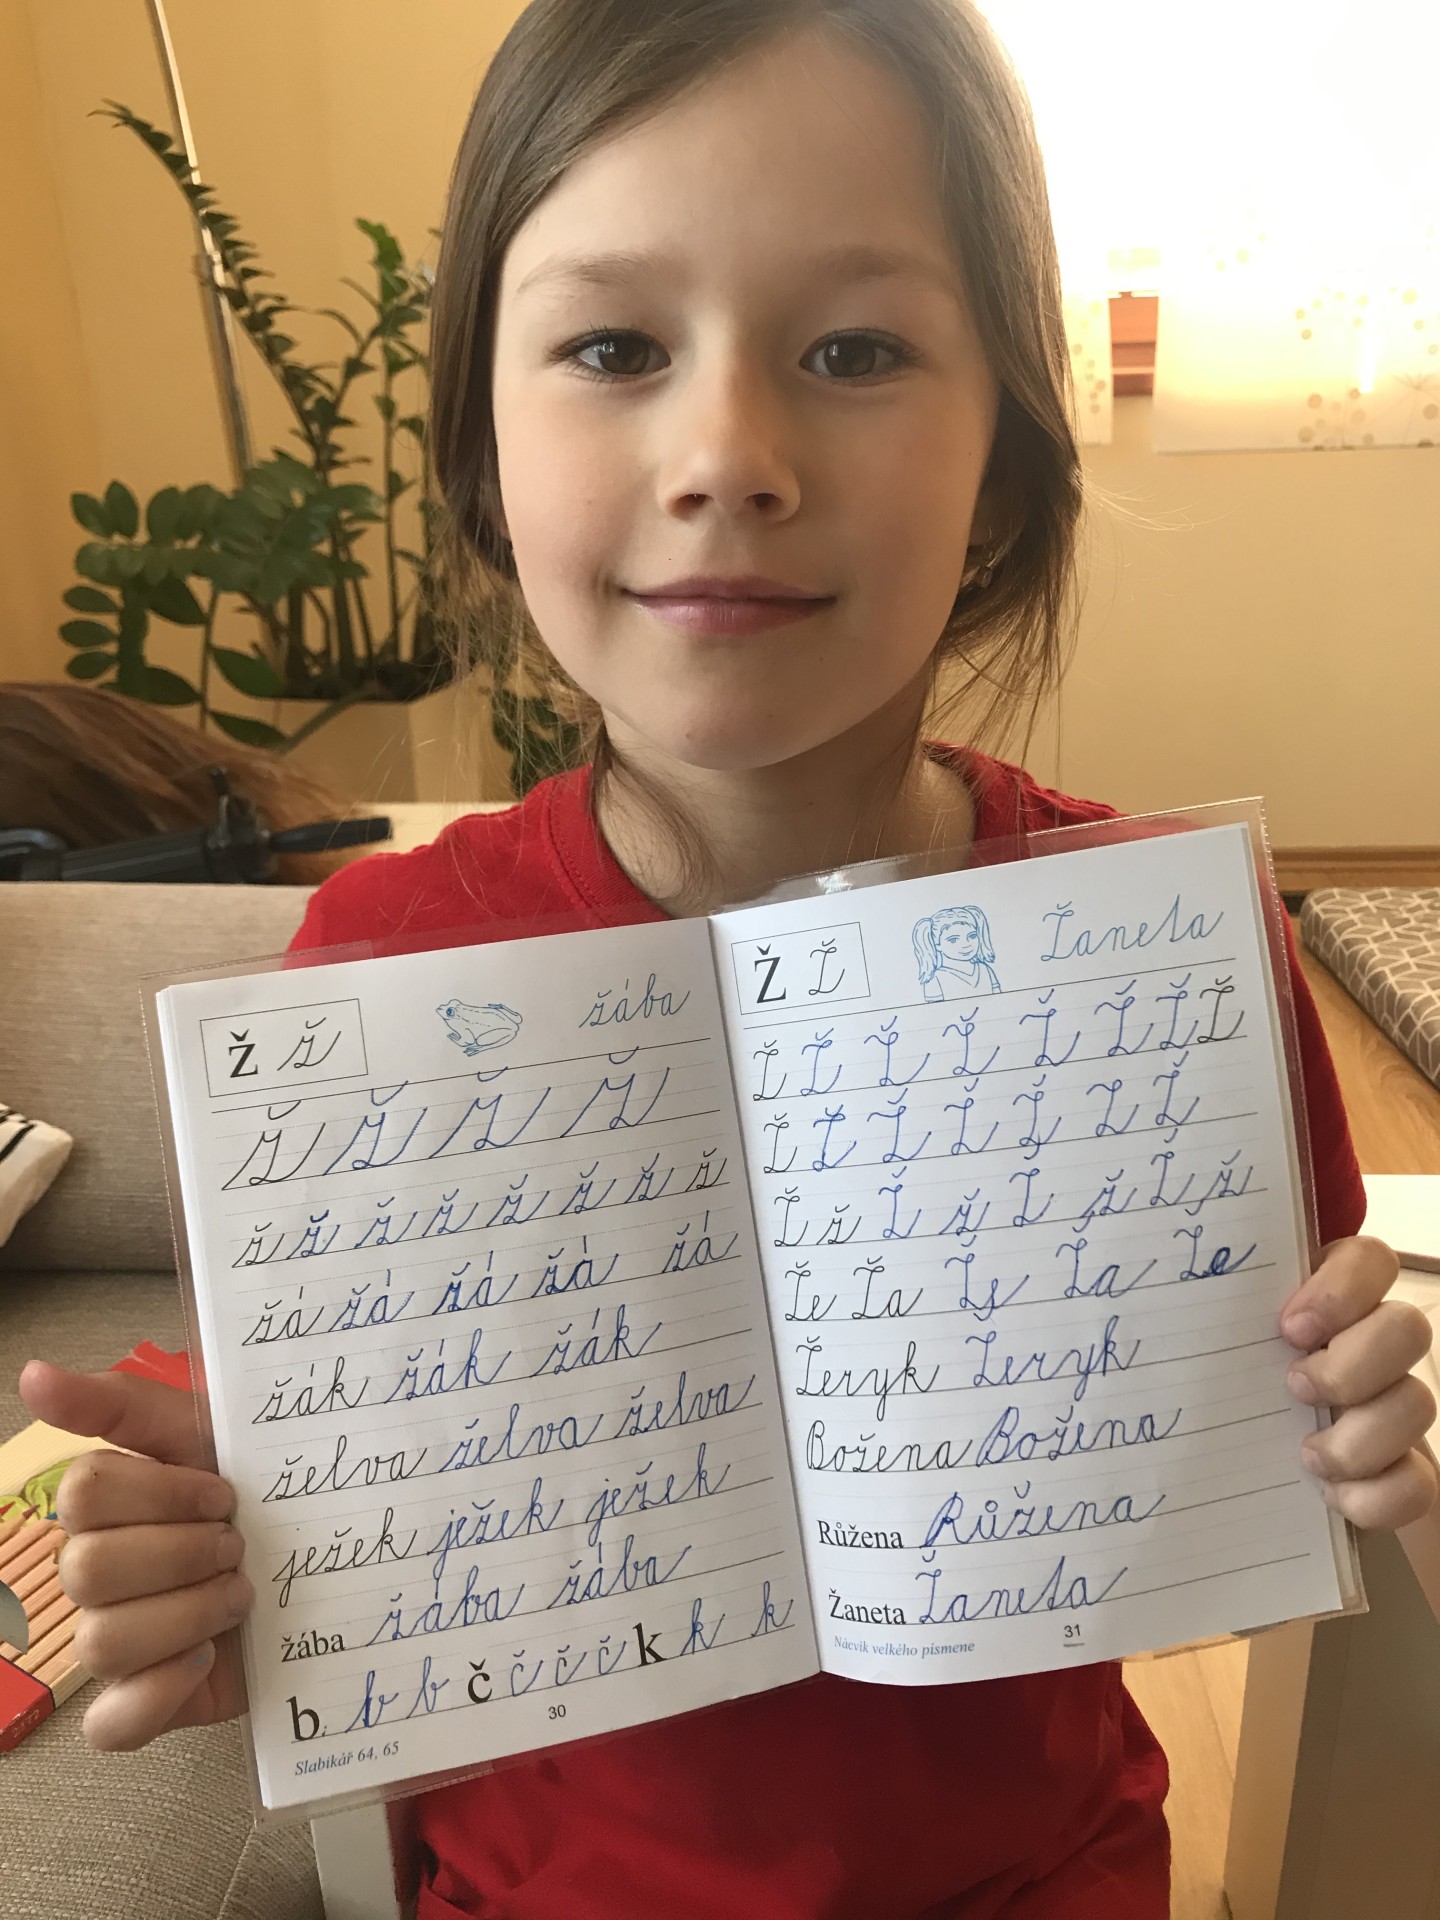 ž ž žába
ž ž ž ž
ž ž ž ž ž ž ž ž
žá žá žá žá žá
žák žák žák
želva želva želva
ježek ježek ježek
žába žába žába
b b b č č č č k k k
Slabikář 64, 65
30
Ž Ž Žaneta
Ž Ž Ž Ž Ž Ž Ž Ž
Ž Ž Ž Ž Ž Z Ž
Ž ž Ž ž Ž ž Ž ž
Že Ža Že Ža Že
Žeryk Žeryk
Božena Božena
Růžena Růžena
Žaneta Žaneta
Nácvik velkého písmene
31